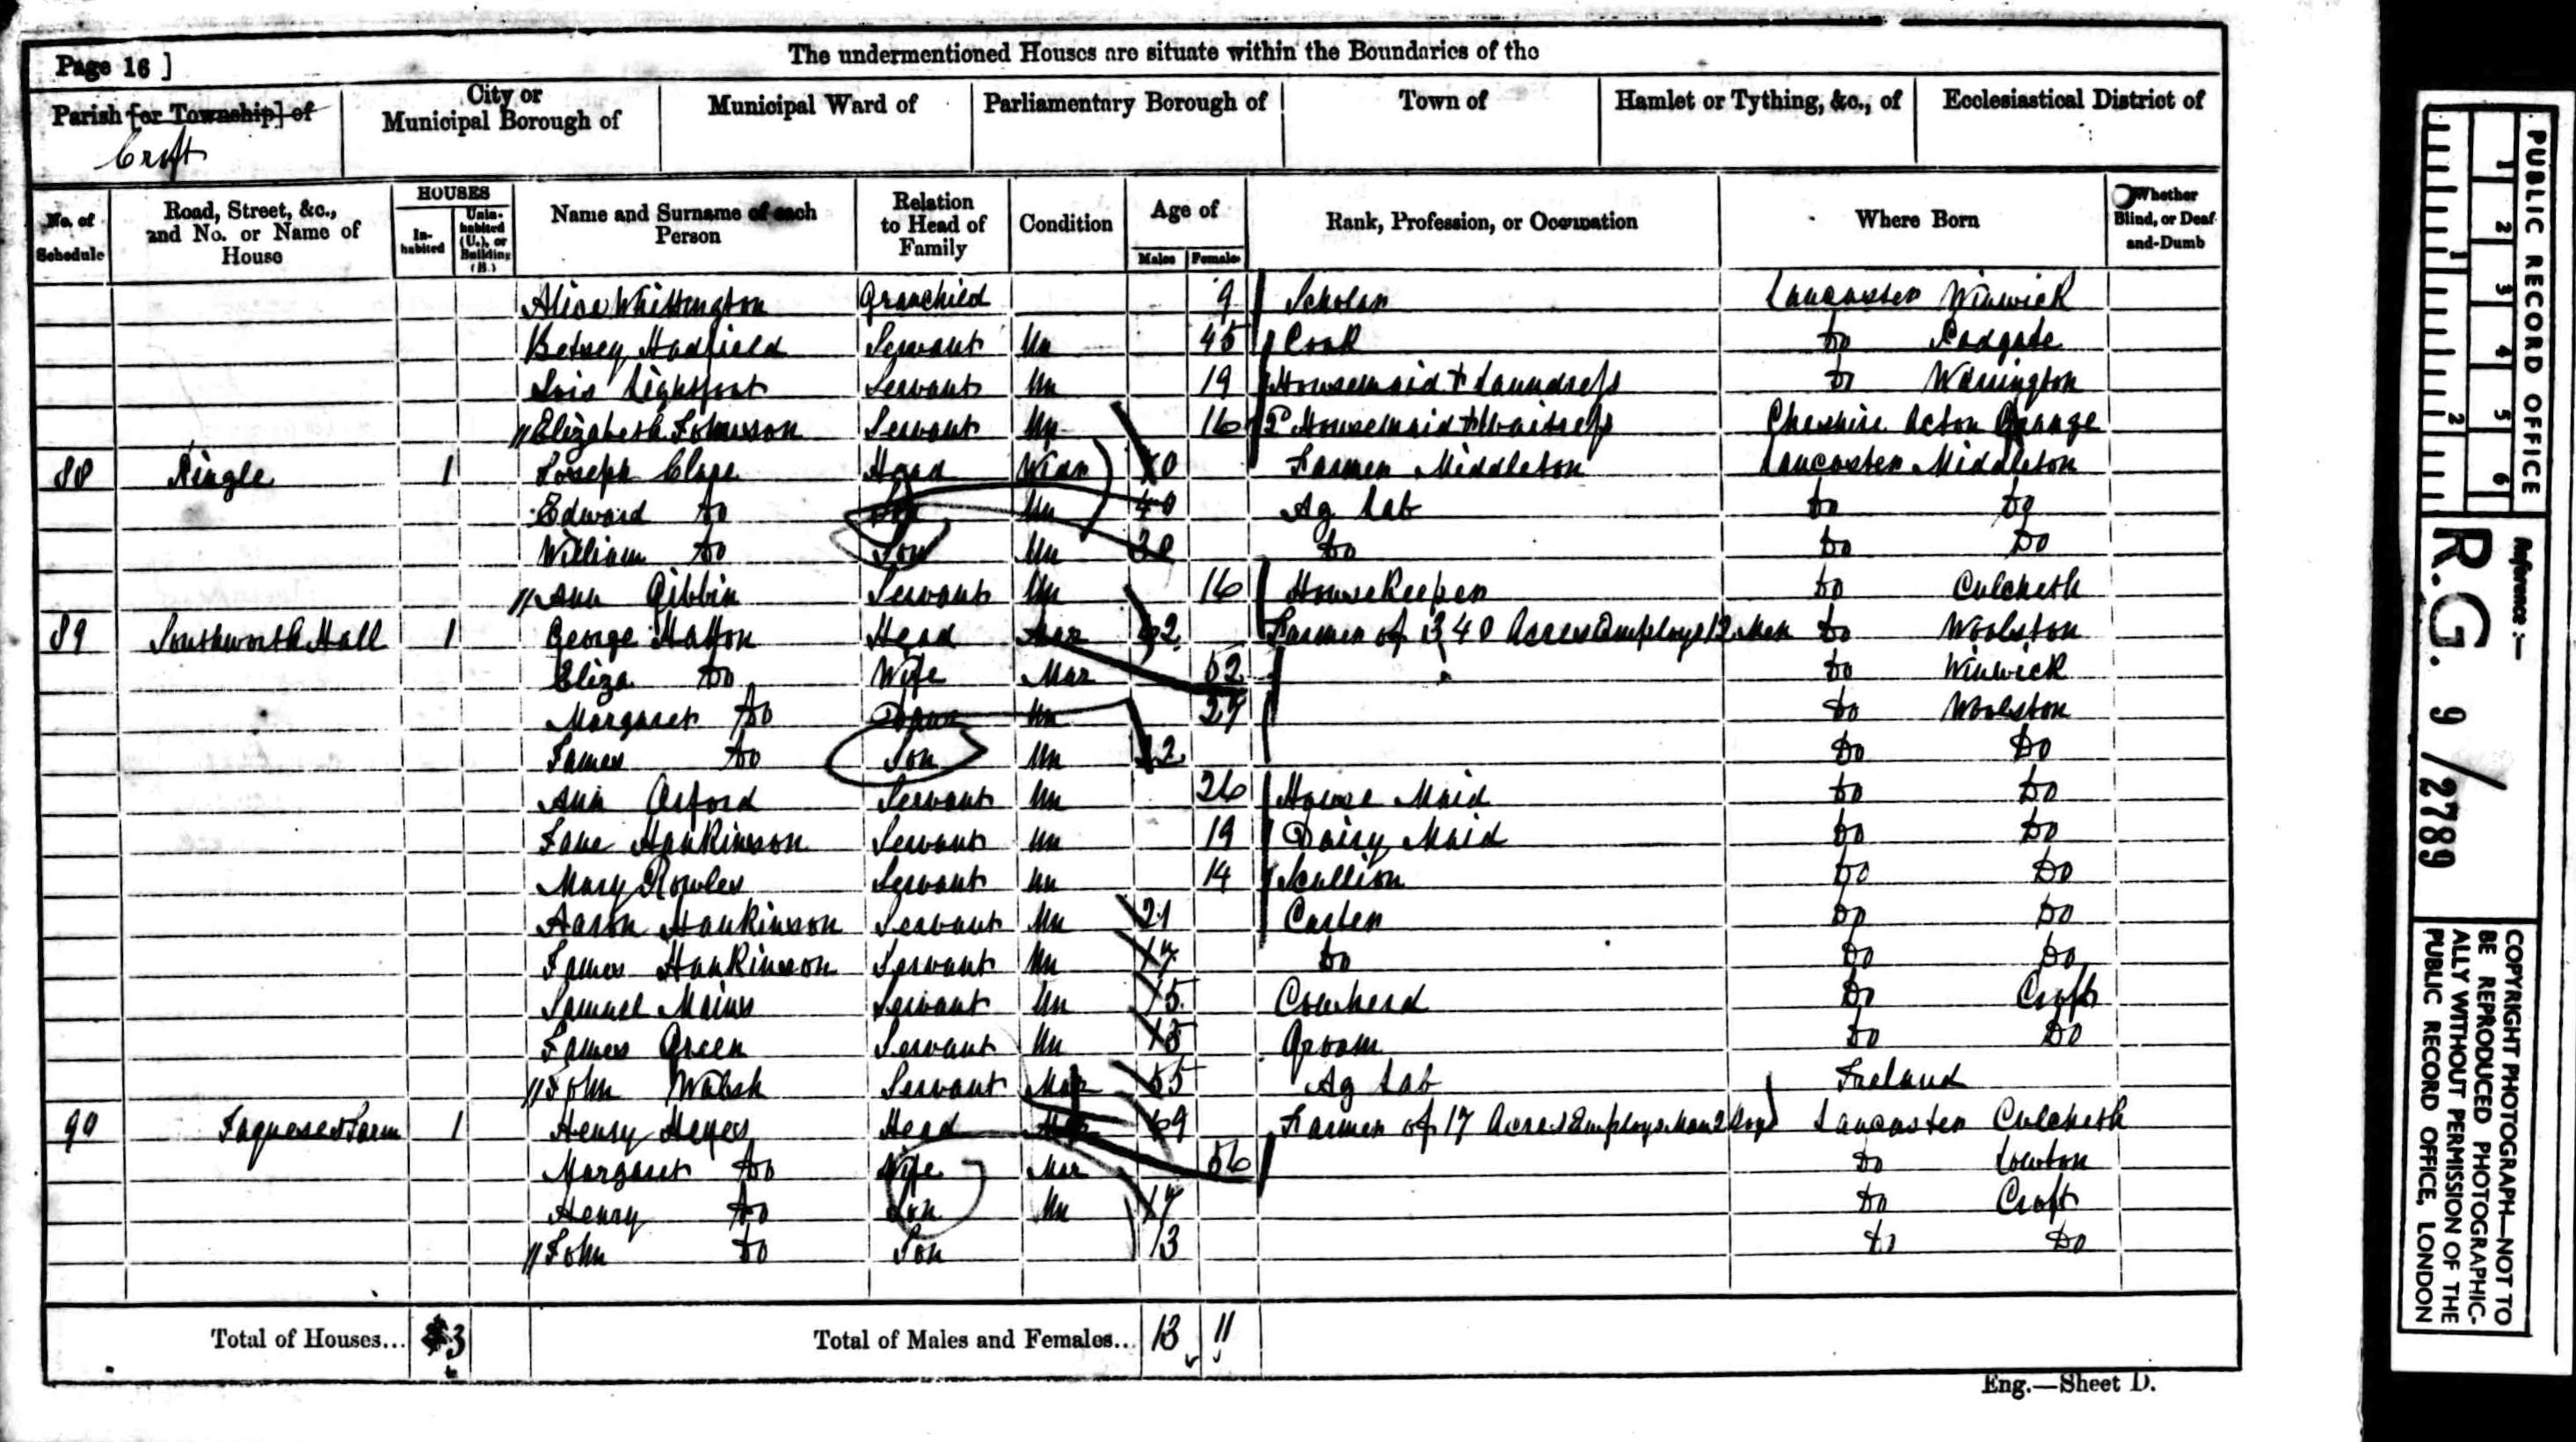 Page 16 ]
The undermentioned Houses are situate within the Boundaries of the
Parish [or Township] of
Croft
City or
Municipal Borough of
Municipal Ward of
Parliamentary Borough of
Town of
Hamlet or Tything, &c., of
Ecclesiastical District of
No. of Schedule
Road, Street, &c., and No. or Name of House
HOUSES
In-habited
Unin-habited (U.), or Building (B.)
Name and Surname of each Person
Relation to Head of Family
Condition
Age of
Males
Females
Rank, Profession, or Occupation
Where Born
Whether Blind, or Deaf-and-Dumb
Alice Whittington Granchild 9 Scholar Lancaster Winwick
Betsey Hadfield Servant Un 45 Cook Do Padgate
Lois Lightfoot Servant Un 19 Housemaid & Laundress Do Warrington
Elizabeth Johnson Servant Un 16 Housemaid & Waitress Cheshire Acton Grange
88 1 Joseph Clare Head Widr 70 Farmer Middleton Lancaster Middleton
Edward Do Son Un 40 Ag Lab Do Do
William Do Son Un Do Do Do
Ann Gibbin Servant Un 16 HouseKeeper Do Culcheth
89 Southworth Hall 1 George Hatton Head Mar Farmer of 340 Acres Employs 12 Men Do Woolston
Eliza Do Wife Mar 52 Do Winwick
Margaret Do Un 27 Do Woolston
James Do Son Un 22 Do Do
Ann Orford Servant Un 26 House Maid Do Do
Jane Hankinson Servant Un 19 Dairy Maid Do Do
Mary Rowles Servant Un 14 Scullion Do Do
Aaron Hankinson Servant Un 21 Carter Do Do
James Hankinson Servant Un 17 Do Do Do
Samuel Mains Servant Un 15 Cowherd Do Croft
James Green Servant Un Groom Do Do
John Walsh Servant Mar 55 Ag Lab Ireland
90 Farm 1 Henry Heyes Head 69 Farmer of 17 Acres Employs Lancaster Culcheth
Margaret Do Wife Mar 56 Do Lowton
Henry Do Son Un 17 Do Croft
John Do Son 13 Do Do
Total of Houses... 3
Total of Males and Females... 13 11
Eng.—Sheet D.
PUBLIC RECORD OFFICE
1 2 3 4 5 6
1 2
Reference :—
R.G. 9 / 2789
COPYRIGHT PHOTOGRAPH—NOT TO
BE REPRODUCED PHOTOGRAPHIC-
ALLY WITHOUT PERMISSION OF THE
PUBLIC RECORD OFFICE, LONDON